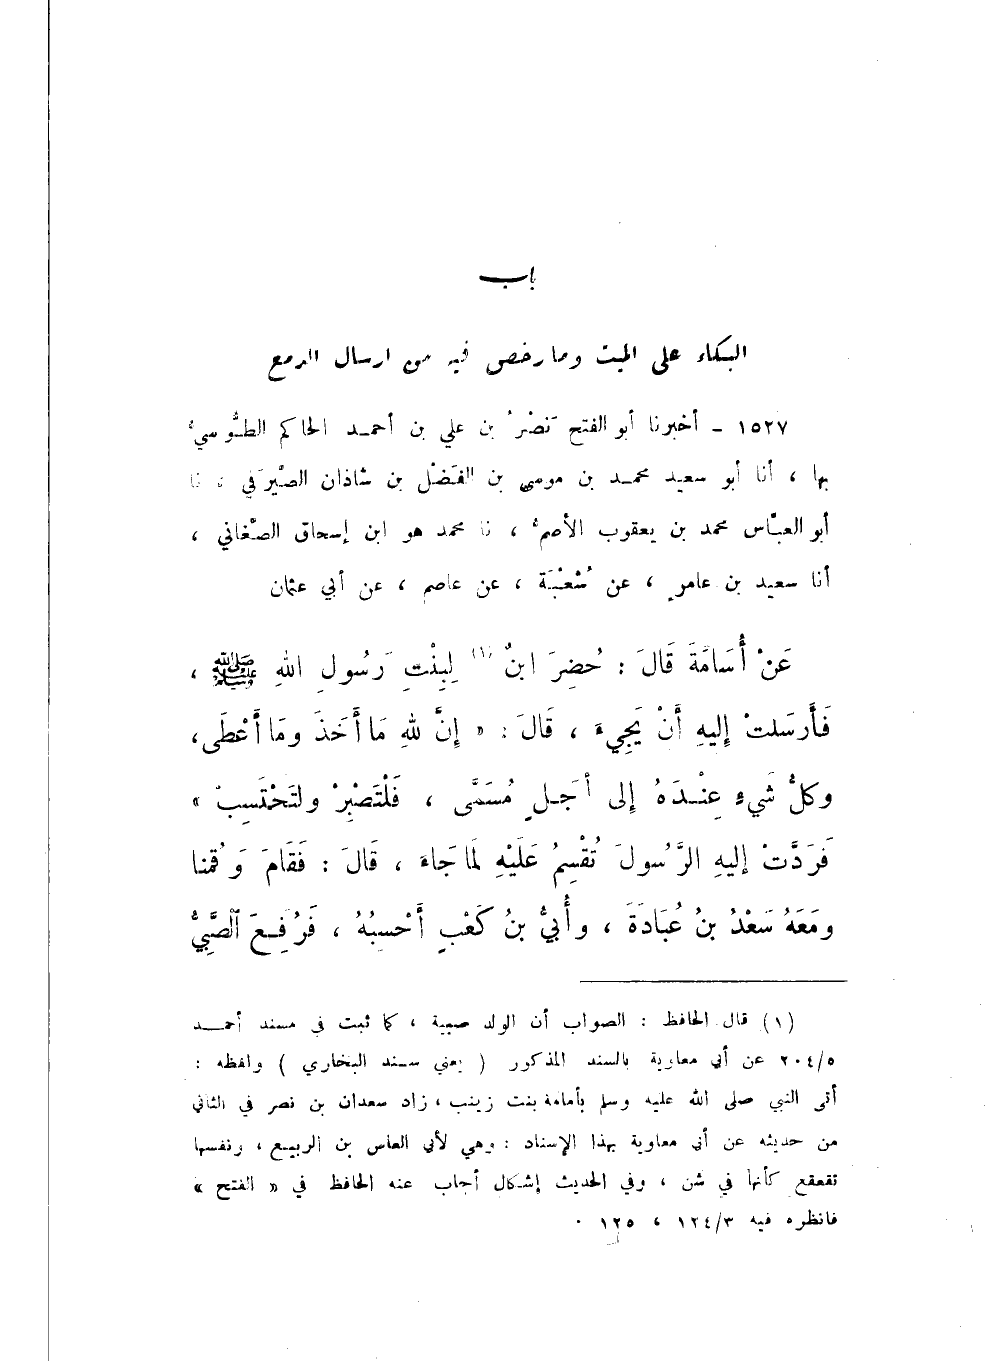 باب
البكاء على الميت وما رخص فيه من ارسال الدمع
١٥٢٧ - أخبرنا أبو الفتح نَصْرُ بن علي بن أحمد الحاكم الطُّوسيُّ
بها ، أنا أبو سعيد محمد بن موسى بن الفَضْل بن شاذان الصَّيْرَفي ، نا
أبو العبّاس محمد بن يعقوب الأصمُّ ، نا محمد هو ابن إسحاق الصَّغاني ،
أنا سعيد بن عامرٍ ، عن شُعْبَة ، عن عاصم ، عن أبي عثمان
عَنْ أُسَامَةَ قَالَ : حُضِرَ ابنٌ (١) لِبِنْتِ رَسُولِ اللهِ ﷺ ،
فَأَرسَلتْ إليهِ أَنْ يَجِيءَ ، قَالَ : « إنَّ للهِ مَا أَخَذَ ومَا أَعْطَى،
وكلُّ شَيءٍ عِنْدَهُ إلى أَجَلٍ مُسَمَّى ، فَلْتَصْبِرْ ولتَحْتَسِبْ »
فَرَدَّتْ إليهِ الرَّسُولَ تُقْسِمُ عَلَيْهِ لمَا جَاءَ ، قَالَ : فَقَامَ وَقُمنا
ومَعَهُ سَعْدُ بنُ عُبَادَةَ ، وأُبيُّ بنُ كَعْبٍ أَحْسِبُهُ ، فَرُفِعَ الصَّبيُّ
(١) قال الحافظ : الصواب أن الولد صبية ، كما ثبت في مسند أحمد
٢٠٤/٥ عن أبي معاوية بالسند المذكور ( يعني سند البخاري ) ولفظه :
أتى النبي صلى الله عليه وسلم بأمامة بنت زينب ، زاد سعدان بن نصر في الثاني
من حديثه عن أبي معاوية بهذا الإسناد : وهي لأبي العاص بن الربيع ، ونفسها
تقعقع كأنها في شن ، وفي الحديث إشكال أجاب عنه الحافظ في « الفتح »
فانظره فيه ١٢٤/٣ ، ١٢٥ .